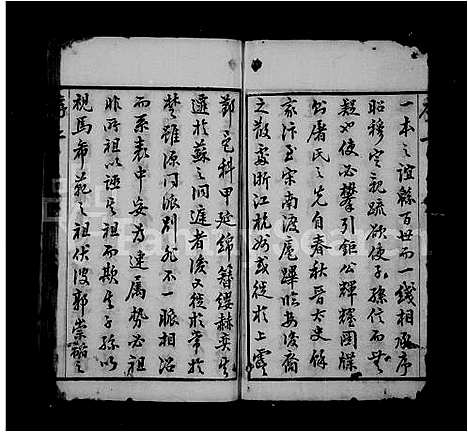 一本之誼緜百世而一綫相承序
昭穆定親疏欲使子孫信而無
疑如使必攀引鉅公輝耀圖牒
屠氏之先自春秋晉太史餘
家汴至宋南渡扈蹕臨安後裔
之散處浙江杭或從於上虞
鄞邑科甲延綿簪纓赫奕
遷於蘇之洞庭者後又從於常於
楚雖源同派別無不一脈相沿
而系表中妄為連屬勢必祖
非所祖以誣其祖而欺其子孫以
視馬希範之祖伏波郭崇韜之